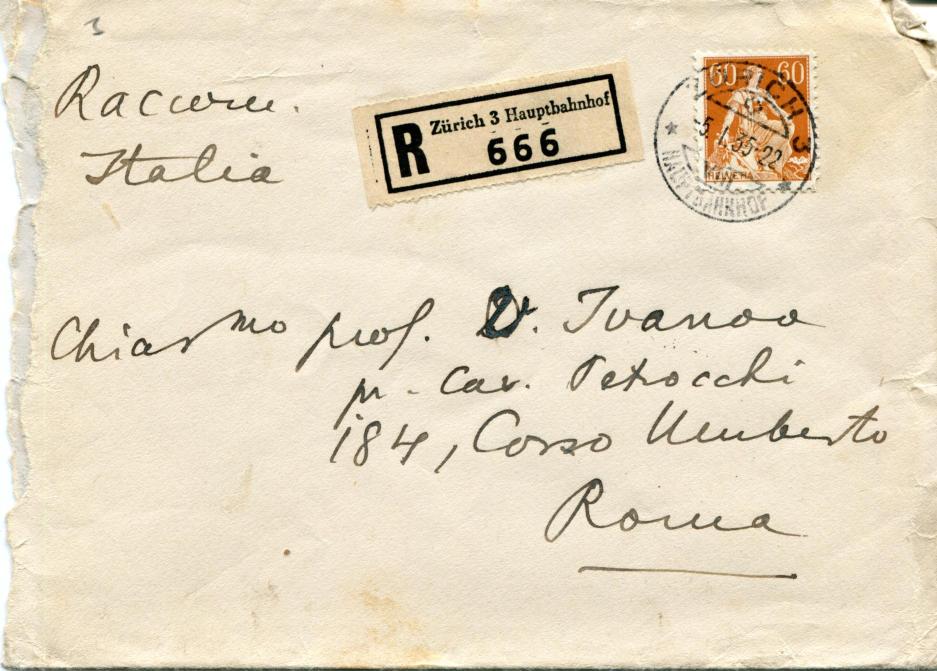 3
Raccom.
Italia
R Zürich 3 Hauptbahnhof
666
60 60
HELVETIA
ZÜRICH 3
5.I.35-22
HAUPTBAHNHOF
Chiarmo prof. V. Ivanov
pr. Cav. Petrocchi
184, Corso Umberto
Roma